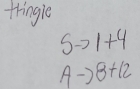 Hingle
S->1+4
A->8+12